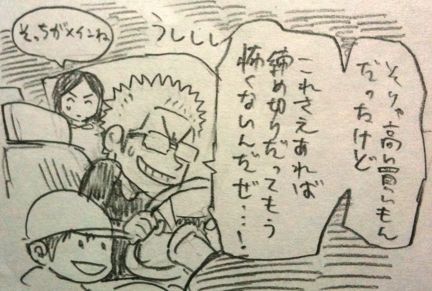 そりゃ高い買いもん
だったけど
これさえあれば
締め切りだってもう
怖くないんだぜ…!
うししし
そっちがメインね